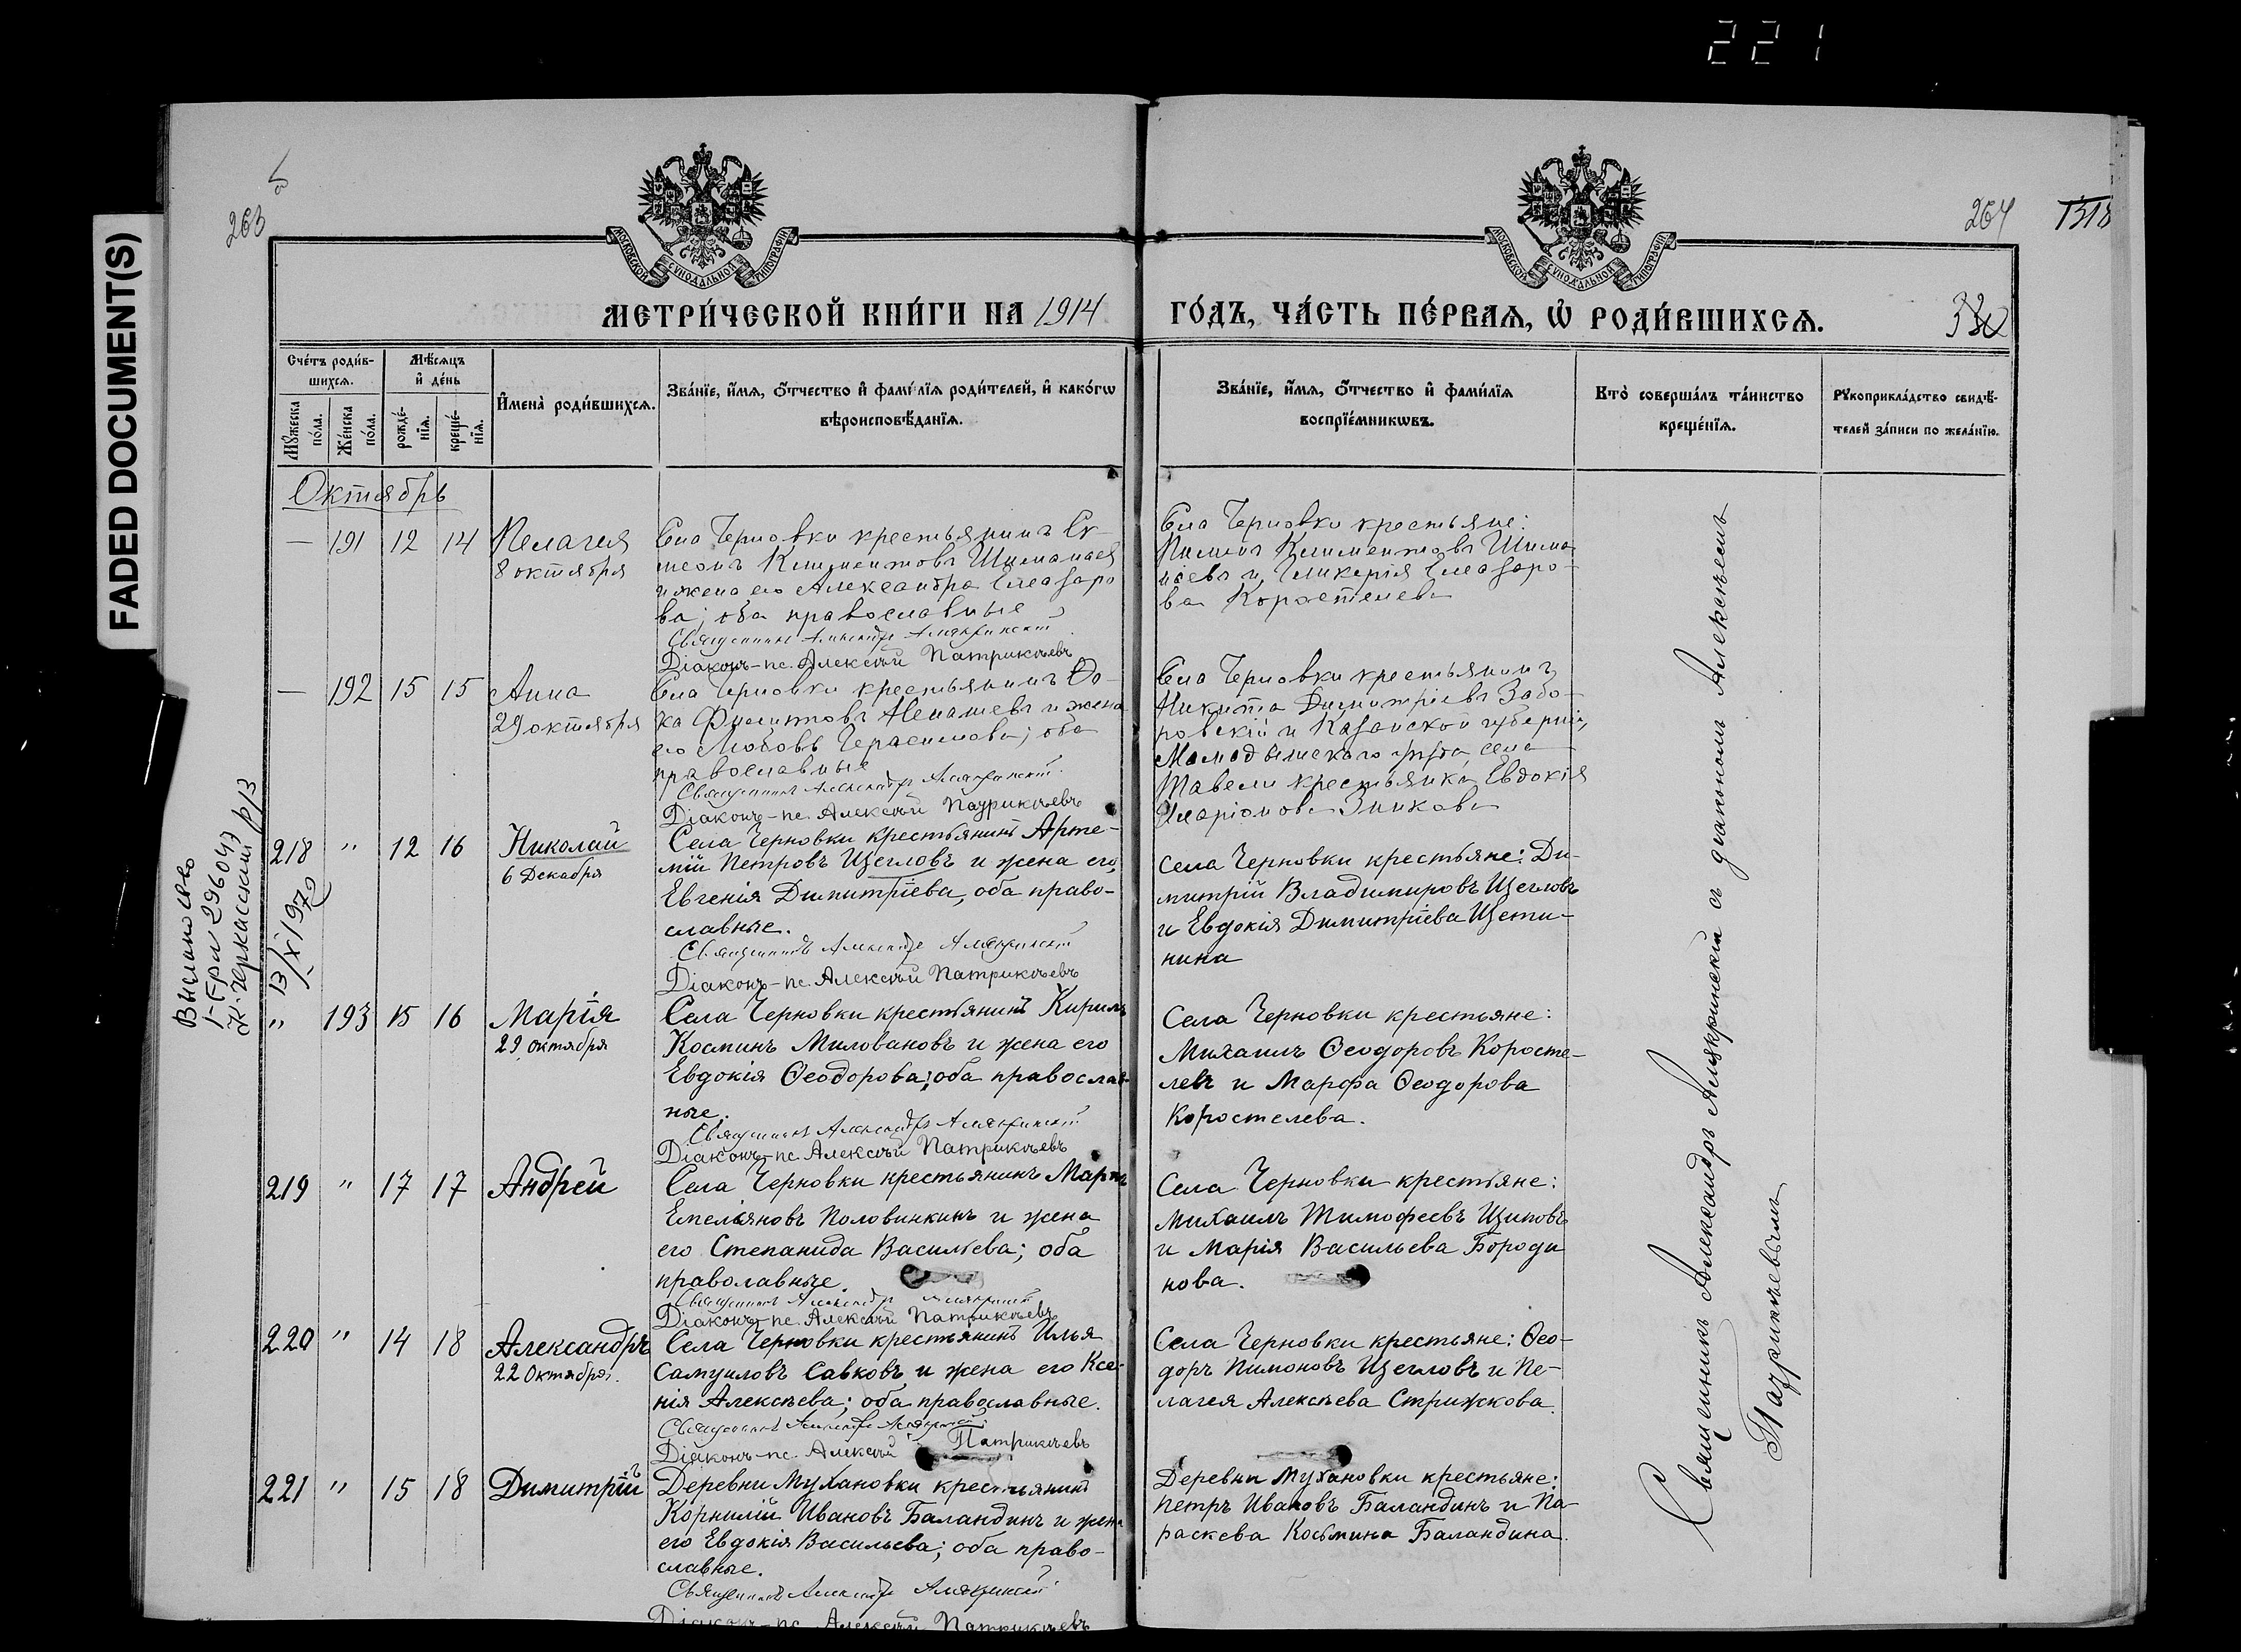 221
FADED DOCUMENT(S)
263
264
1318
МОСКОВСКОЙ СѴНОДАЛЬНОЙ ТИПОГРАФІИ
МОСКОВСКОЙ СѴНОДАЛЬНОЙ ТИПОГРАФІИ
МЕТРИ́ЧЕСКОЙ КНИ́ГИ НА 1914
ГО́ДЪ, ЧА́СТЬ ПЕ́РВАѦ, Ѡ҆ РОДИ́ВШИХСѦ.
Сче́тъ роди́в-
шихсѧ.
Мѣ́сѧцъ
и҆ де́нь
Мꙋ́жеска
по́ла.
Же́нска
по́ла.
рожде́-
нїѧ.
креще́-
нїѧ.
И҆мена̀ роди́вшихсѧ.
Зва́нїе, и҆́мѧ, ѻ҆́тчество и҆ фамі́лїѧ роди́телей, и҆ како́гѡ
вѣроисповѣ́данїѧ.
Зва́нїе, и҆́мѧ, ѻ҆́тчество и҆ фами́лїѧ
воспрїе́мникѡвъ.
Кто̀ соверша́лъ та́инство
креще́нїѧ.
Рꙋкоприкла́дство свидѣ́-
телей за́писи по жела́нїю.
Октябрь
— 191 12 14 Пелагея
8 октября
Села Черновки крестьянинъ
Климентовъ
и жена его Александра Елеазаро
ва; оба православные
Священникъ Александръ Алякринскій
Діаконъ-пс. Алексѣй Патрикѣевъ
Села Черновки крестьяне:
Климентовъ Шима
Гликерія Елеазаро-
ва Коростелева
— 192 15 15 Анна
29 октября
Села Черновки крестьянинъ Фо-
ка Филиповъ и жена
его Любовь Герасимова; оба
православные
Священникъ Александръ Алякринскій
Діаконъ-пс. Алексѣй Патрикѣевъ
Села Черновки крестьянинъ
Никита Димитріевъ Забо-
ровскій и Казанской губерніи,
Мамадышскаго уѣзда, села
Тавели крестьянка Евдокія
Иларіонова Зыкова
218 " 12 16 Николай
6 Декабря
Села Черновки крестьянинъ Арте-
мій Петровъ Щегловъ и жена его,
Евгенія Димитріева, оба право-
славные.
Священникъ Александръ Алякринскій
Діаконъ-пс. Алексѣй Патрикѣевъ
Села Черновки крестьяне: Ди-
митрій Владимировъ Щегловъ
и Евдокія Димитріева Щети-
нина
Выслано св-во
I-ЕРИ 296047
К-Черкасский р/з
13/X 1972
" 193 15 16 Марія
29 октября
Села Черновки крестьянинъ Кирилъ
Косминъ Миловановъ и жена его
Евдокія Ѳеодорова; оба православ-
ные.
Священникъ Александръ Алякринскій
Діаконъ-пс. Алексѣй Патрикѣевъ
Села Черновки крестьяне:
Михаилъ Ѳеодоровъ Коросте-
левъ и Марфа Ѳеодорова
Коростелева.
219 " 17 17 Андрей
Села Черновки крестьянинъ
Емельяновъ Половинкинъ и жена
его Степанида Васильева; оба
праволавные.
Священникъ Александръ Алякринскій
Діаконъ-пс. Алексѣй Патрикѣевъ
Села Черновки крестьяне:
Михаилъ Тимофеевъ Щиповъ
и Марія Васильева Бороди
нова.
220 " 14 18 Александръ
22 Октября.
Села Черновки крестьянинъ Илья
Самуиловъ Савковъ и жена его Ксе-
нія Алексѣева; оба православные.
Священникъ Александръ Алякринскій
Діаконъ-пс. Алексѣй Патрикѣевъ
Села Черновки крестьяне: Ѳео-
доръ Пимоновъ Щегловъ и Пе-
лагея Алексѣева Стрижкова.
221 " 15 18 Димитрій
Деревни Мухановки крестьянинъ
Корнилій Ивановъ Баландинъ и жена
его Евдокія Васильева; оба право-
славные.
Священникъ Александръ Алякринскій
Діаконъ-пс. Алексѣй Патрикѣевъ
Деревни Мухановки крестьяне:
Петръ Ивановъ Баландинъ и Па-
раскева Косьмина Баландина.
Священникъ Александръ Алякринскій съ діакономъ Алексѣемъ
Патрикѣевымъ